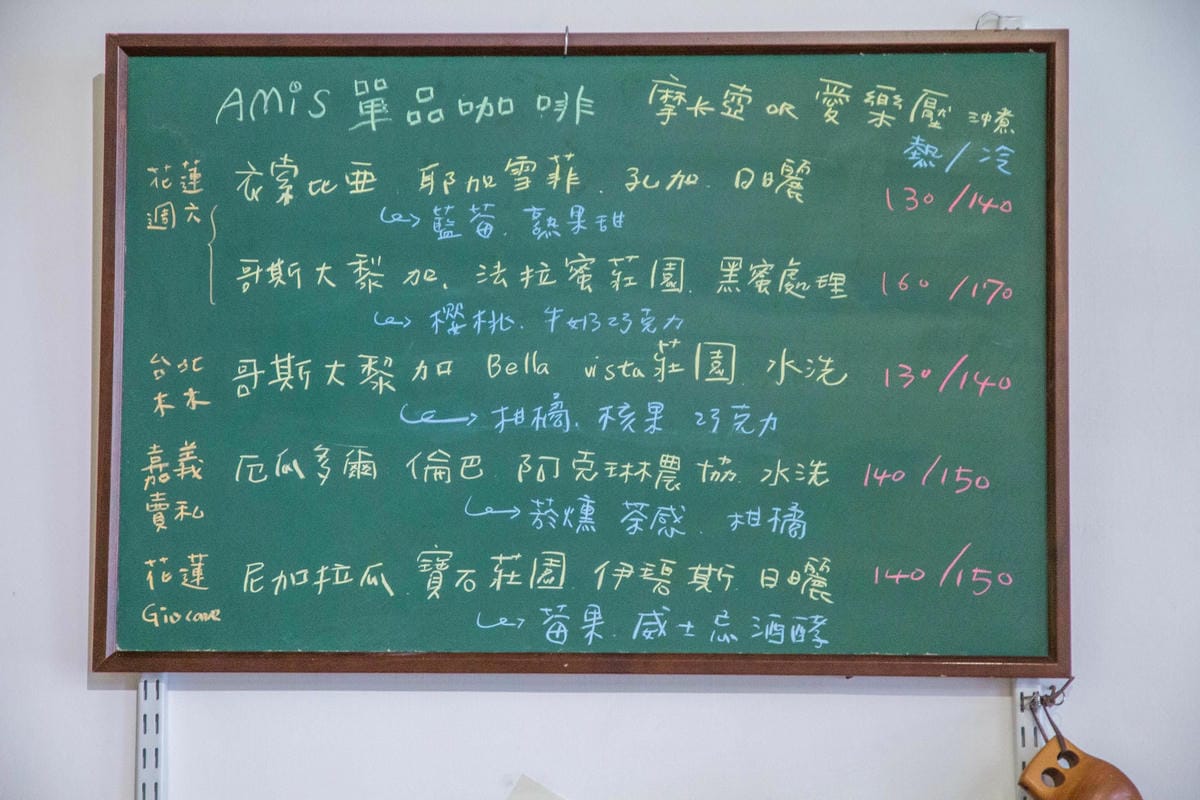 AMiS 單品咖啡 摩卡壺 OR 愛樂壓 沖煮
熱/冷
花蓮 衣索比亞. 耶加雪菲. 孔加. 日曬 130/140
週六
↪ 藍莓. 熟果甜
哥斯大黎加. 法拉蜜莊園. 黑蜜處理 160/170
↪ 櫻桃. 牛奶巧克力
台北 哥斯大黎加 Bella vista莊園. 水洗 130/140
木木
↪ 柑橘. 核果 巧克力
嘉義 厄瓜多爾 倫巴 阿克琳農協. 水洗 140/150
賣私
↪ 菸燻 茶感. 柑橘
花蓮 尼加拉瓜. 寶石莊園. 伊碧斯. 日曬 140/150
Giocare
↪ 莓果. 威士忌 酒酵